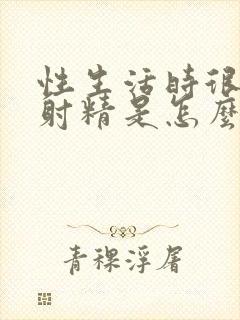 性生活时很
射精是怎麼
青稞浮屠